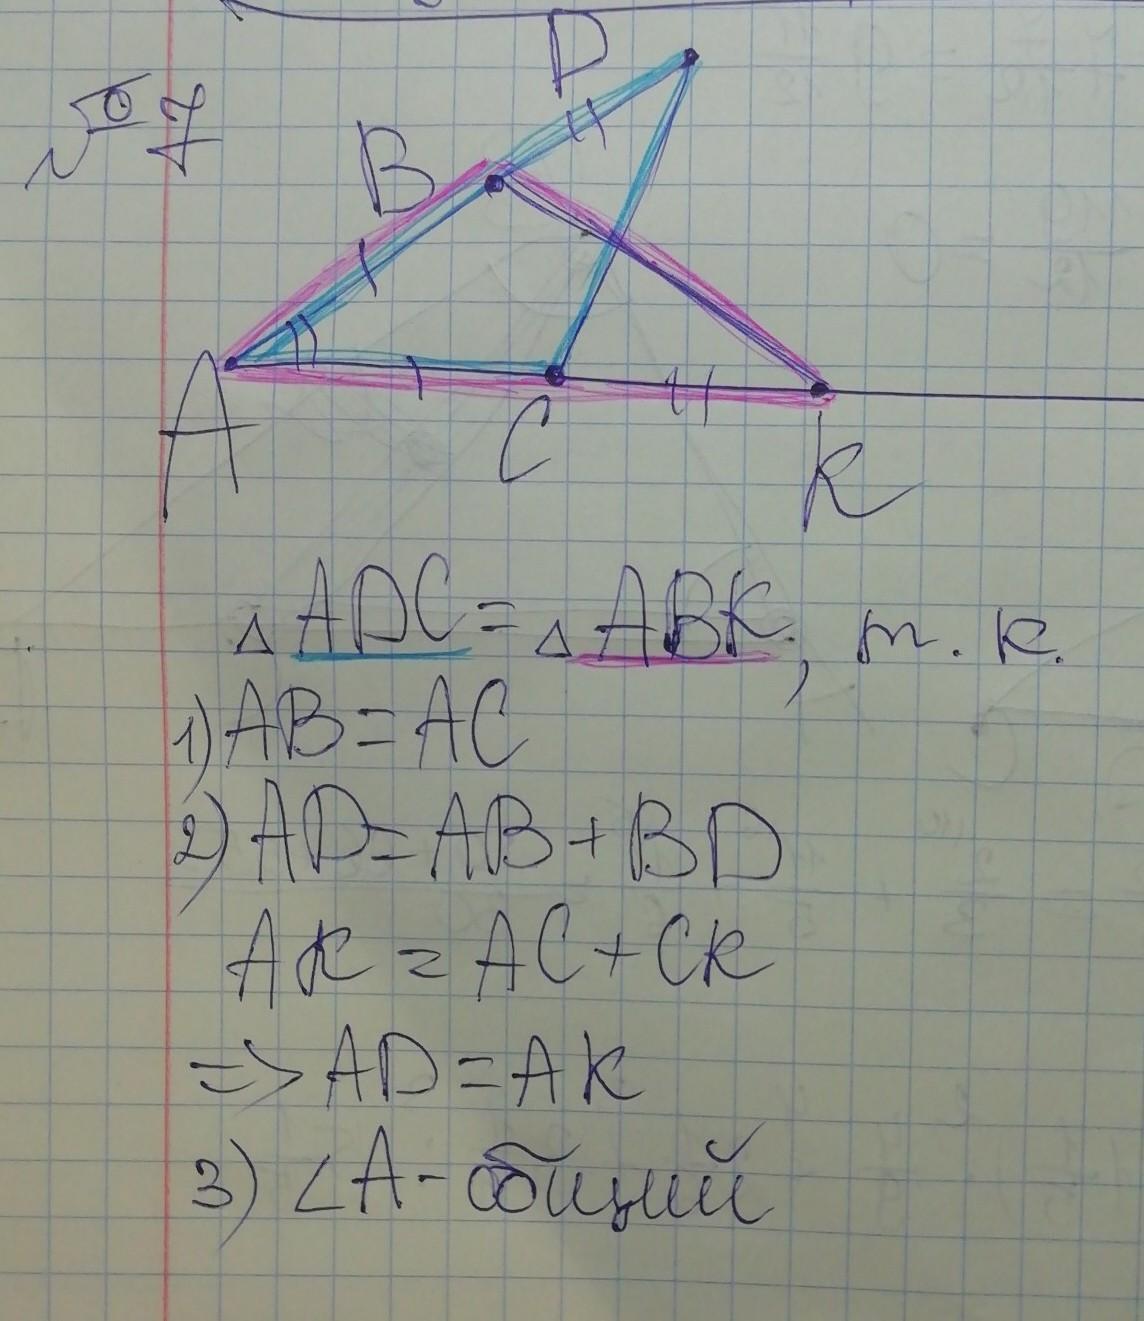 № 7
D
B
A
C
K
△ ADC = △ ABK, т. к.
1) AB = AC
2) AD = AB + BD
AK = AC + CK
=> AD = AK
3) ∠A - общий